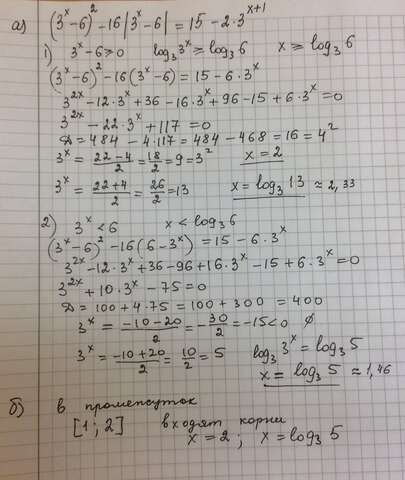 а) (3^x-6)^2-16|3^x-6|=15-2·3^{x+1}
1) 3^x-6⩾0 log_3 3^x ⩾ log_3 6 x ⩾ log_3 6
(3^x-6)^2-16(3^x-6)=15-6·3^x
3^{2x}-12·3^x+36-16·3^x+96-15+6·3^x=0
3^{2x}-22·3^x+117=0
D=484-4·117=484-468=16=4^2
3^x=\frac{22-4}{2}=\frac{18}{2}=9=3^2 x=2
3^x=\frac{22+4}{2}=\frac{26}{2}=13 x=log_3 13 ≈ 2,33
2) 3^x<6 x<log_3 6
(3^x-6)^2-16(6-3^x)=15-6·3^x
3^{2x}-12·3^x+36-96+16·3^x-15+6·3^x=0
3^{2x}+10·3^x-75=0
D=100+4·75=100+300=400
3^x=\frac{-10-20}{2}=-\frac{30}{2}=-15<0 ∅
3^x=\frac{-10+20}{2}=\frac{10}{2}=5 log_3 3^x=log_3 5
x=log_3 5 ≈1,46
б) в промежуток
[1; 2] входят корни
x=2; x=log_3 5